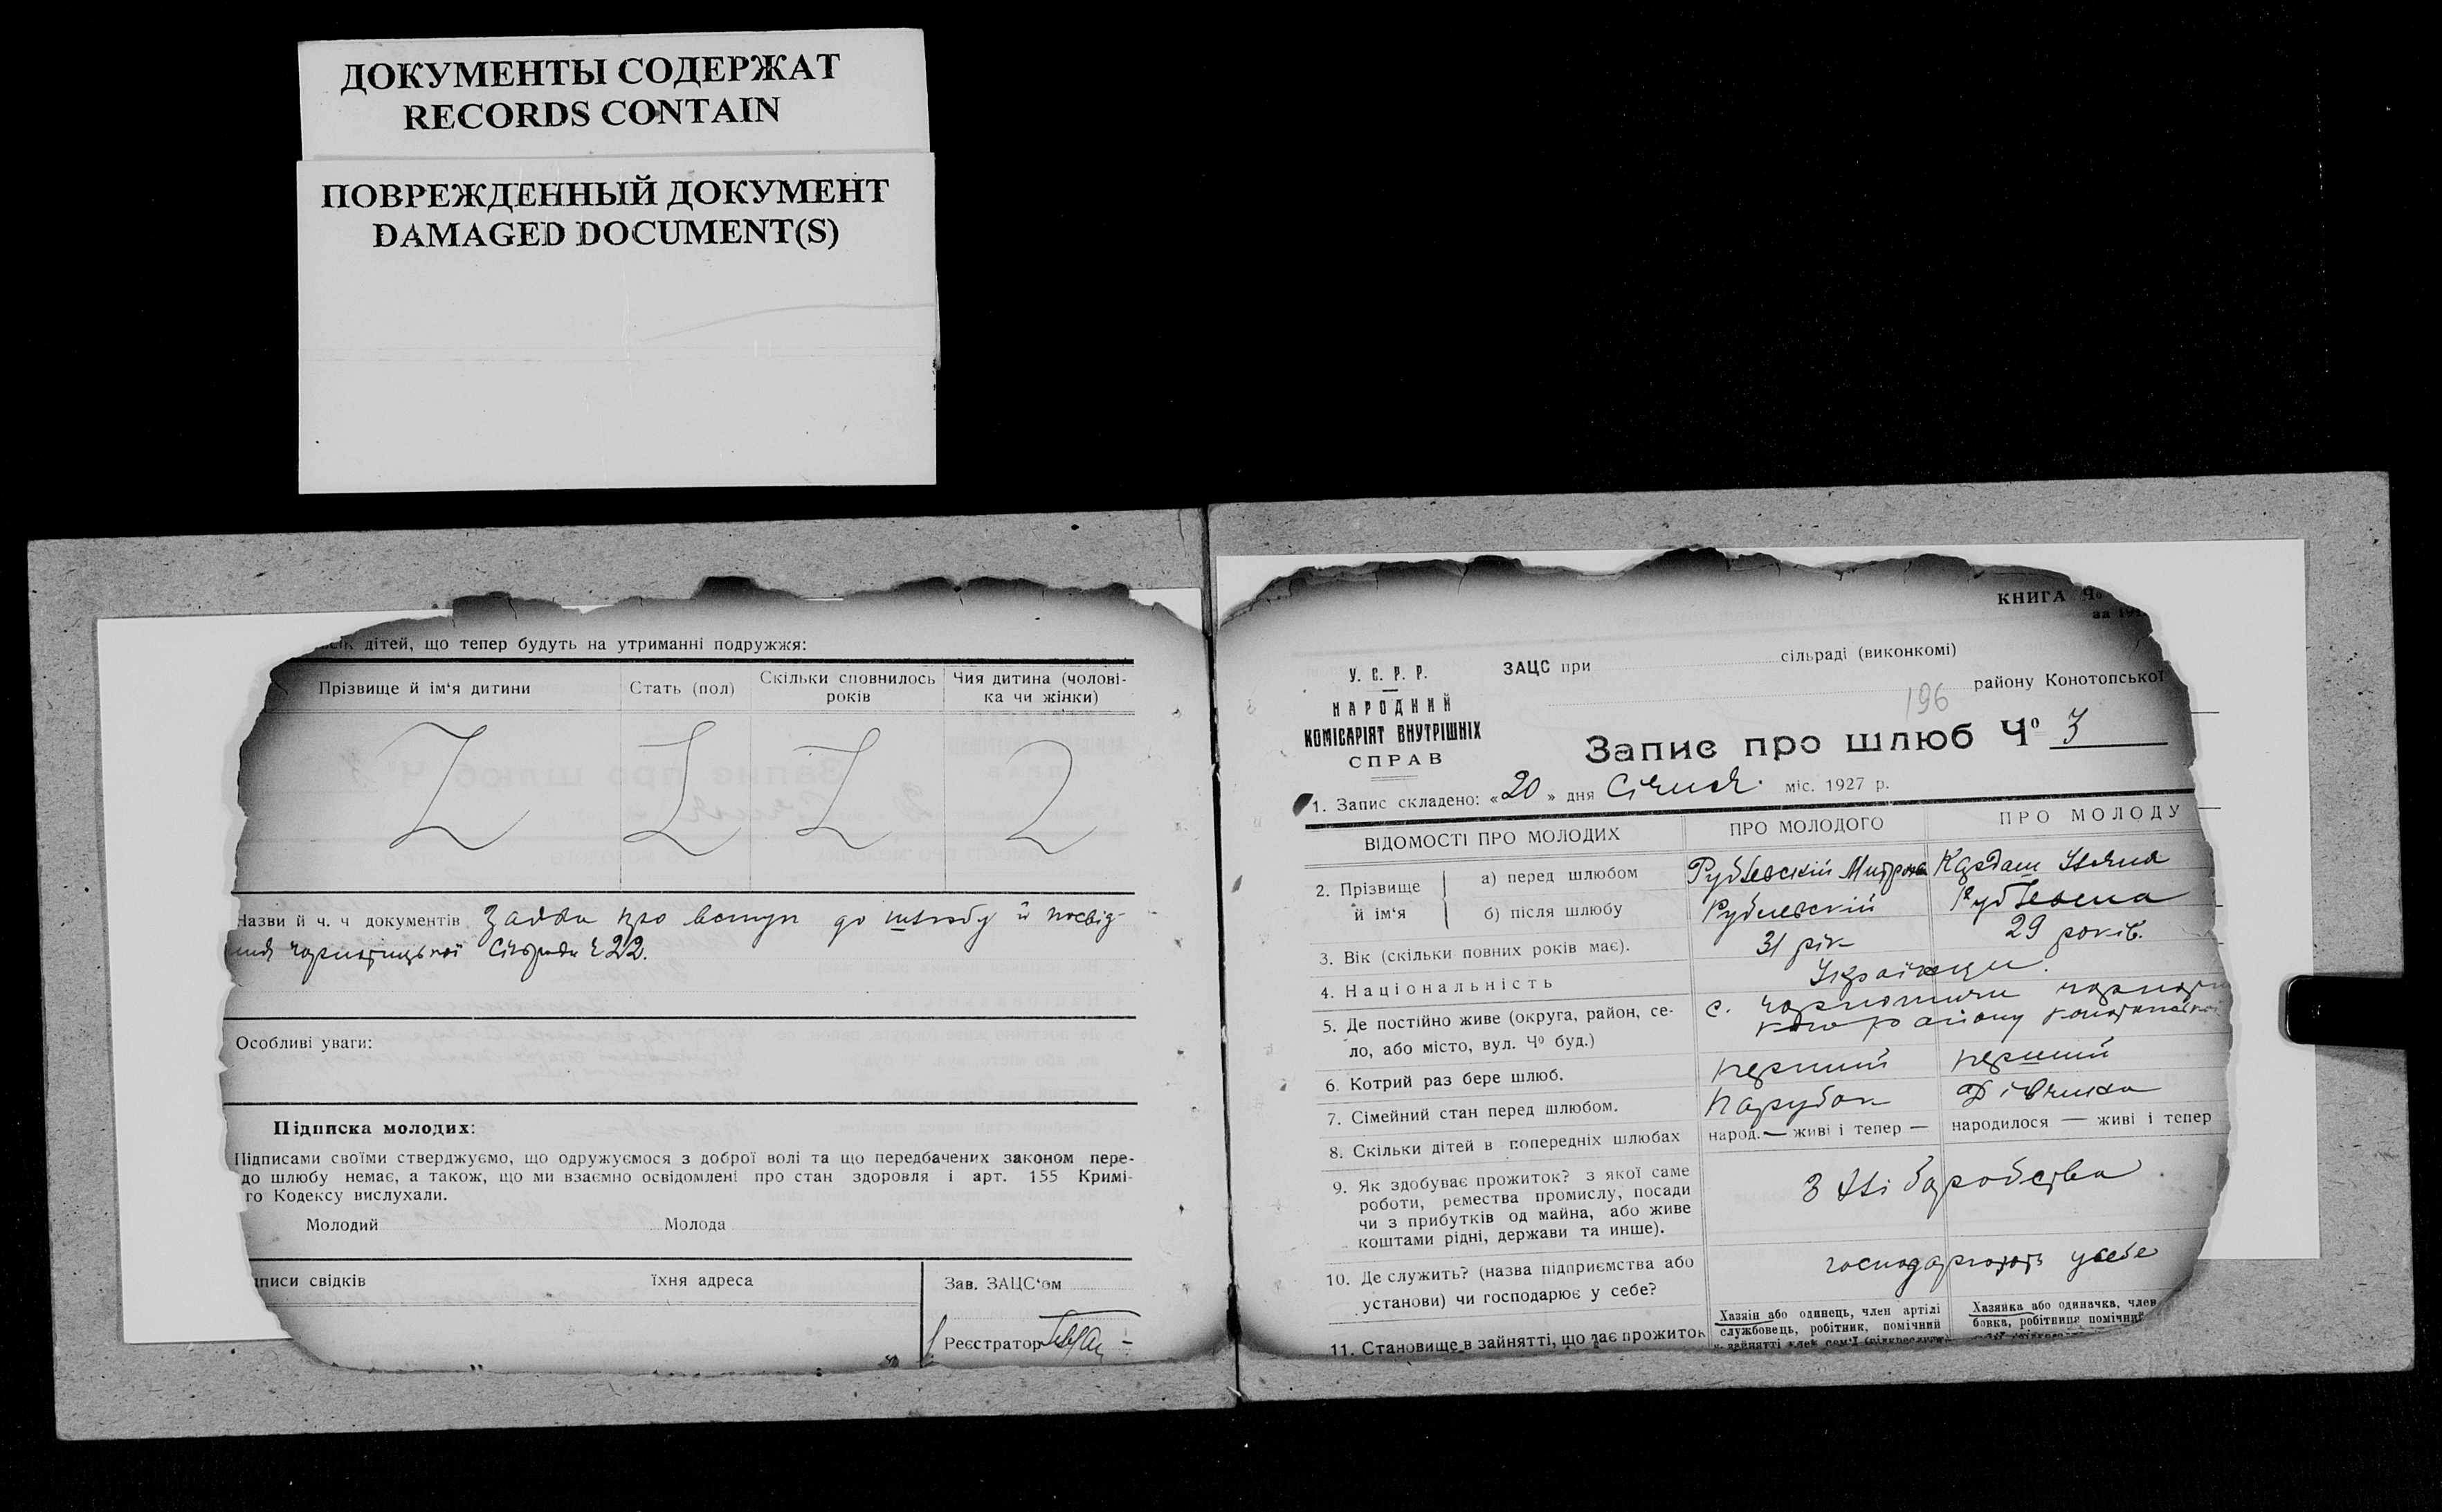 ДОКУМЕНТЫ СОДЕРЖАТ
RECORDS CONTAIN
ПОВРЕЖДЕННЫЙ ДОКУМЕНТ
DAMAGED DOCUMENT(S)
дітей, що тепер будуть на утриманні подружжя:
Прізвище й ім'я дитини
Стать (пол)
Скільки сповнилось
років
Чия дитина (чолові-
ка чи жінки)
Z Z Z Z
Назви й ч. ч документів Заява про вступ до шлюбу й посвід-
Сільради 22.
Особливі уваги:
Підписка молодих:
Підписами своїми стверджуємо, що одружуємося з доброї волі та що передбачених законом пере-
до шлюбу немає, а також, що ми взаємно освідомлені про стан здоровля і арт. 155 Кримі-
го Кодексу вислухали.
Молодий Молода
писи свідків
їхня адреса
Зав. ЗАЦС'ом
Реєстратор
КНИГА Чо
за 19
У. С. Р. Р.
НАРОДНИЙ
КОМІСАРІЯТ ВНУТРІШНІХ
СПРАВ
ЗАЦС при сільраді (виконкомі)
196 району Конотопської
Запис про шлюб Чо 3
1. Запис складено: «20» дня Січня міс. 1927 р.
ВІДОМОСТІ ПРО МОЛОДИХ
ПРО МОЛОДОГО
ПРО МОЛОДУ
2. Прізвище
й ім'я
а) перед шлюбом
б) після шлюбу
Кардаш
3. Вік (скільки повних років має).
31 рік
29 років.
4. Національність
Українци.
5. Де постійно живе (округа, район, се-
ло, або місто, вул. Чо буд.)
с.
району
6. Котрий раз бере шлюб.
перший
перший
7. Сімейний стан перед шлюбом.
Парубок
Дівчина
8. Скільки дітей в попередніх шлюбах
народ.— живі і тепер —
народилося — живі і тепер
9. Як здобуває прожиток? з якої саме
роботи, ремества промислу, посади
чи з прибутків од майна, або живе
коштами рідні, держави та инше).
З хліборобства
10. Де служить? (назва підприємства або
установи) чи господарює у себе?
господарюють у себе
11. Становище в зайнятті, що дає прожиток
Хазяін або одинець, член артілі
службовець, робітник, помічний
Хазяйка або одиначка, член
бовка, робітниця помічний